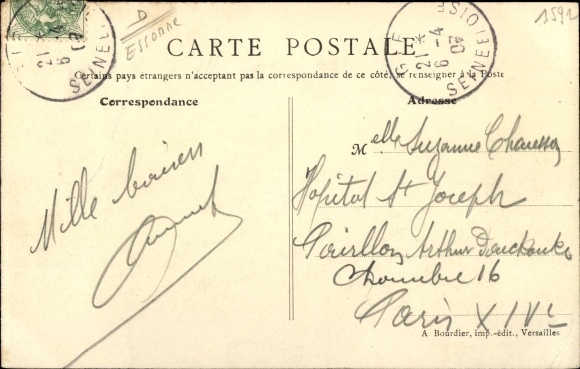 1592
D
ESSONNE
CARTE POSTALE
Certains pays étrangers n'acceptant pas la correspondance de ce côté, se renseigner à la Poste
Correspondance
Adresse
Mille baisers
Melle Suzanne
Hopital St Joseph
Pavillon Arthur
Chambre 16
Paris XIVe
A Bourdier, imp.-édit., Versailles
21 *
6 - 4
SEINE ET OISE